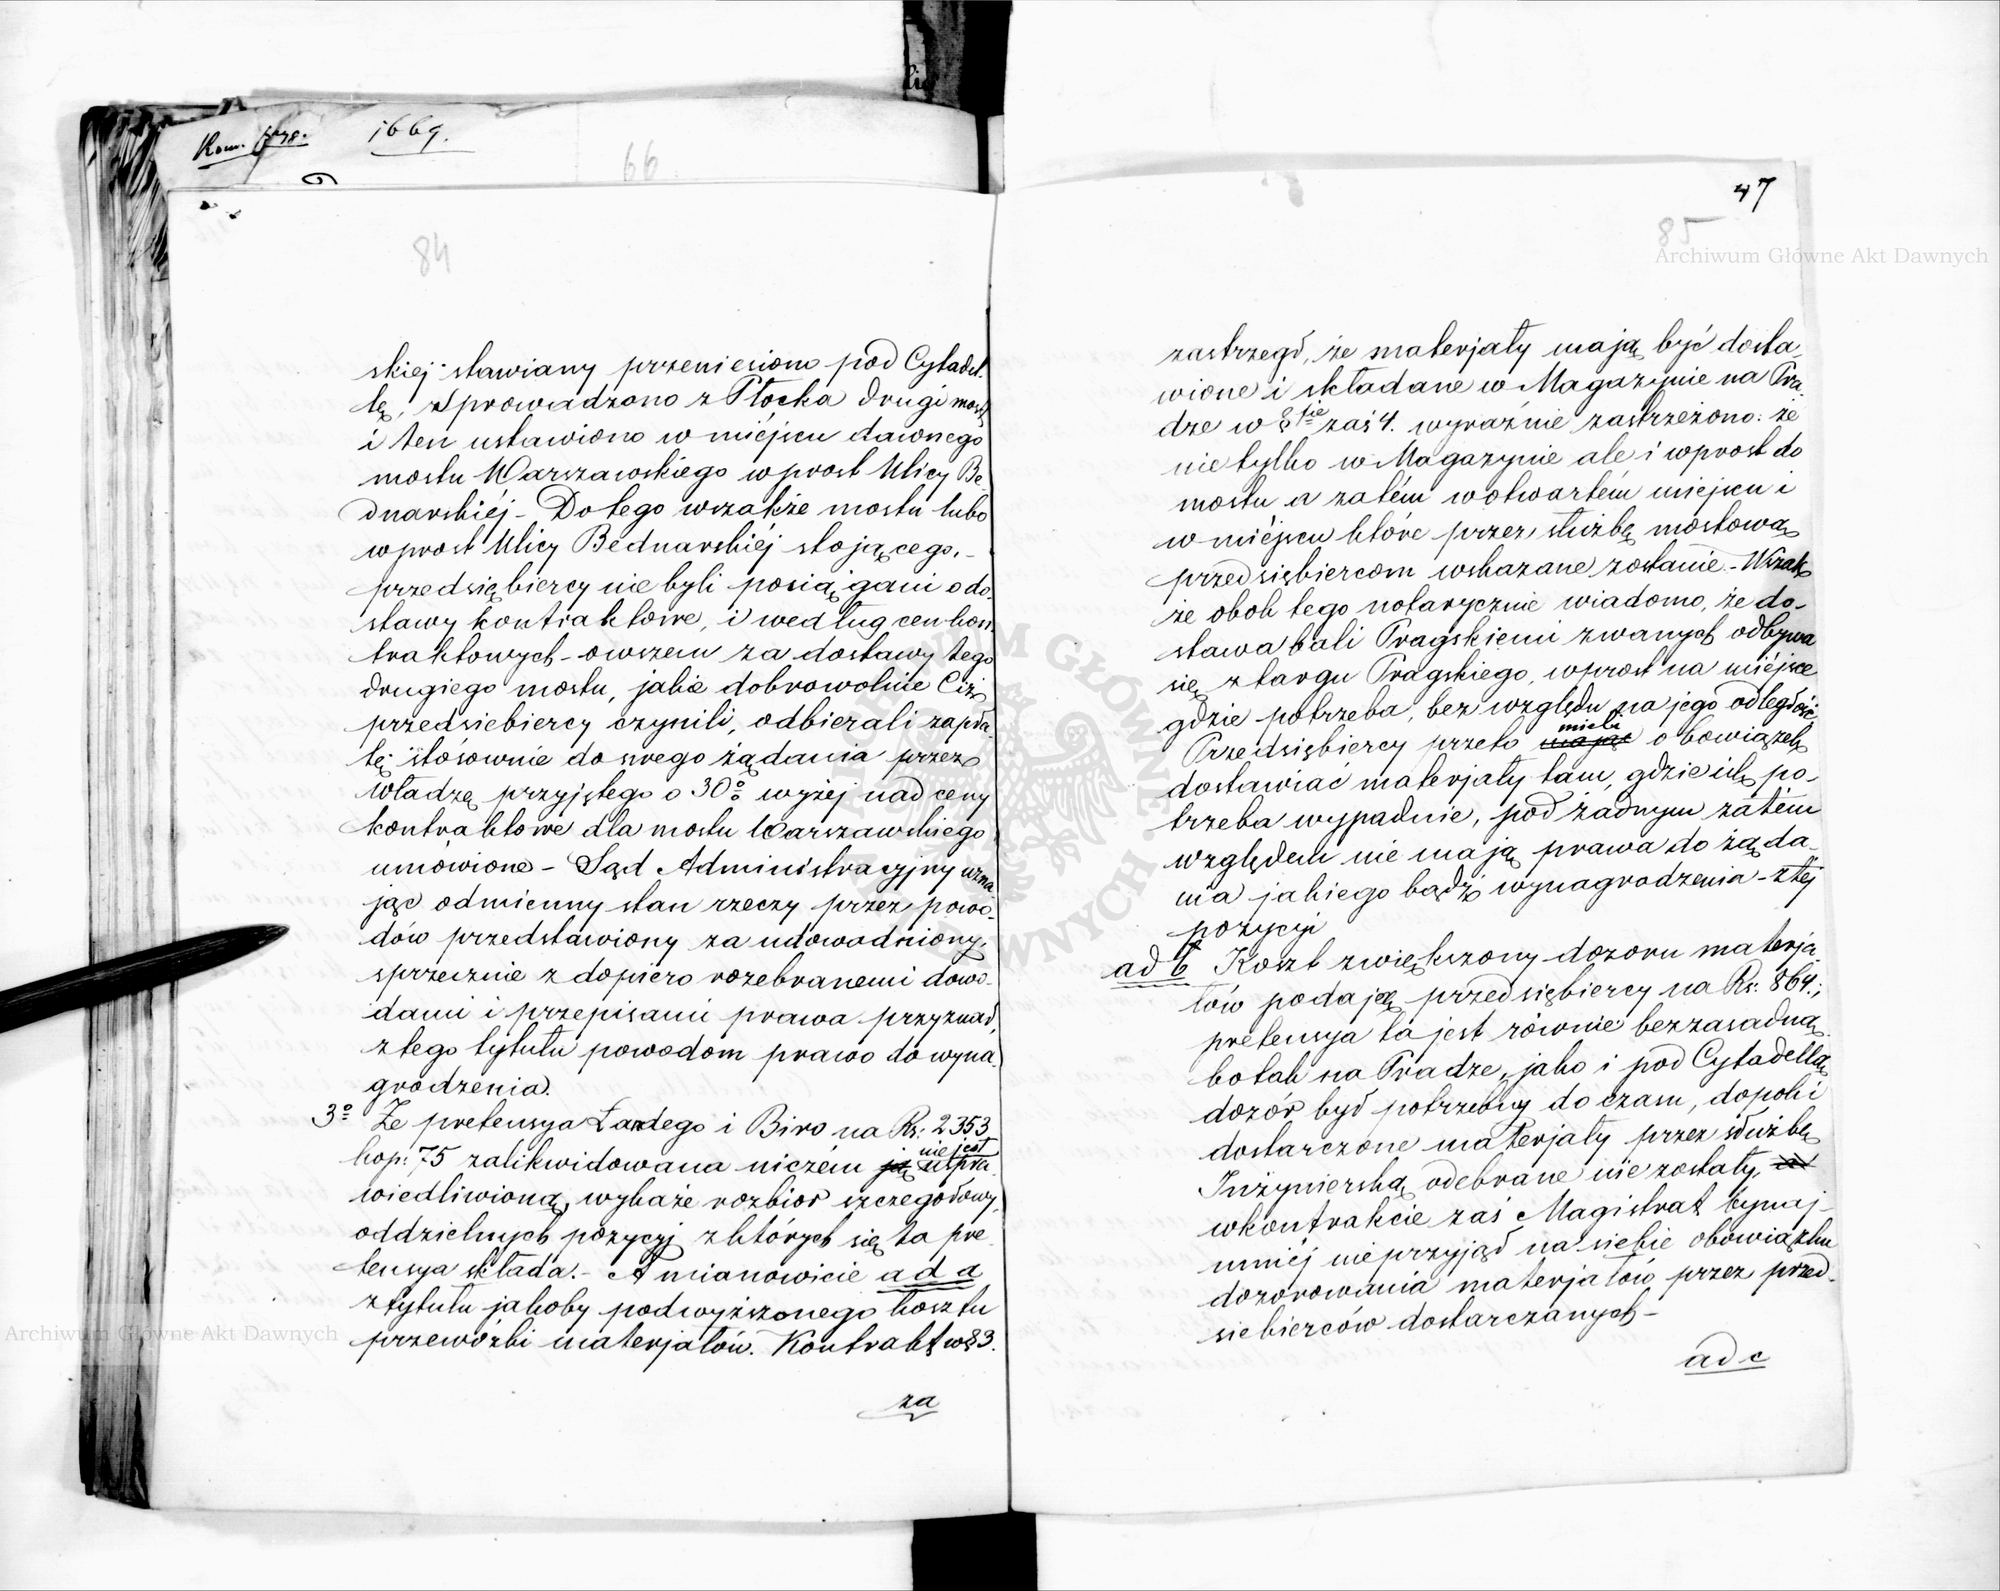 1669.
66
84
skiej stawiany przeniesiono pod Cytadel-
lę, sprowadzono z Płocka drugi most
i ten ustawiono w miejscu dawnego
mostu Warszawskiego wprost Ulicy Be-
dnarskiéj – Do tego wszakże mostu lubo
wprost Ulicy Bednarskiéj stojącego, –
przedsiębiercy nie byli pociągani o do-
stawy kontraktowe, i według cen kon-
traktowych – owszem za dostawy tego
drugiego mostu, jakie dobrowolnie Ciż
przedsiebiercy czynili, odbierali zapła-
tę stósownie do swego żądania przez
Władzę przyjętego o 30% wyżej nad ceny
kontraktowe dla mostu Warszawskiego
umówione – Sąd Administracyjny uzna
jąc odmienny stan rzeczy przez powo-
dów przedstawiony za udowodniony,
sprzecznie z dopiero rozebranemi dowo-
dami i przepisami prawa przyznał,
z tego tytułu powodom prawo do wyna-
grodzenia.
3o Że pretensya Landego i Biro na Rs: 2353
kop: 75 zalikwidowana niczém nie jest uspra-
wiedliwioną, wykaże rozbiór szczegółowy,
oddzielnych pozycyj z których się ta pre-
tensya składa. – A mianowicie ad a
z tytułu jakoby podwyższonego kosztu
przewózki materjałów. Kontrakt w § 3.
za
47
85
Archiwum Główne Akt Dawnych
zastrzegł, że materjały mają być dosta-
wione i składane w Magazynie na Pra-
dze w §fie zaś 4. wyraźnie zastrzeżono: że
nie tylko w Magazynie ale i wprost do
mostu a zatém w otwartém miejscu i
w miéjscu które przez służbę mostową
przedsiębiercom wskazane zostanie. – Wszak
że obok tego notarycznie wiadomo, że do-
stawa bali Pragskiemi zwanych odbywa
się z targu Pragskiego, wprost na miéjsce
gdzie potrzeba, bez względu na jego odległość
Przedsiębiercy przeto mieli obowiązek
dostawiać materjały tam, gdzie ich po-
trzeba wypadnie, pod żadnym zatém
względem nie mają prawa do żąda-
nia jakiego bądź wynagrodzenia – z téj
pozycyi
ad b Koszt zwiększony dozoru materja-
łów podają przedsiębiercy na Rs: 864.;
pretensya ta jest równie bezzasadną
bo tak na Pradze, jako i pod Cytadellą
dozór był potrzebny do czasu, dopoki
dostarczone materjały przez służbę
Inżynierską odebrane nie zostały,
w kontrakcie zaś Magistrat bynaj-
mniéj nie przyjął na siebie obowiązku
dozorowania materjałów przez przed-
siebierców dostarczanych –
ad c
Archiwum Główne Akt Dawnych